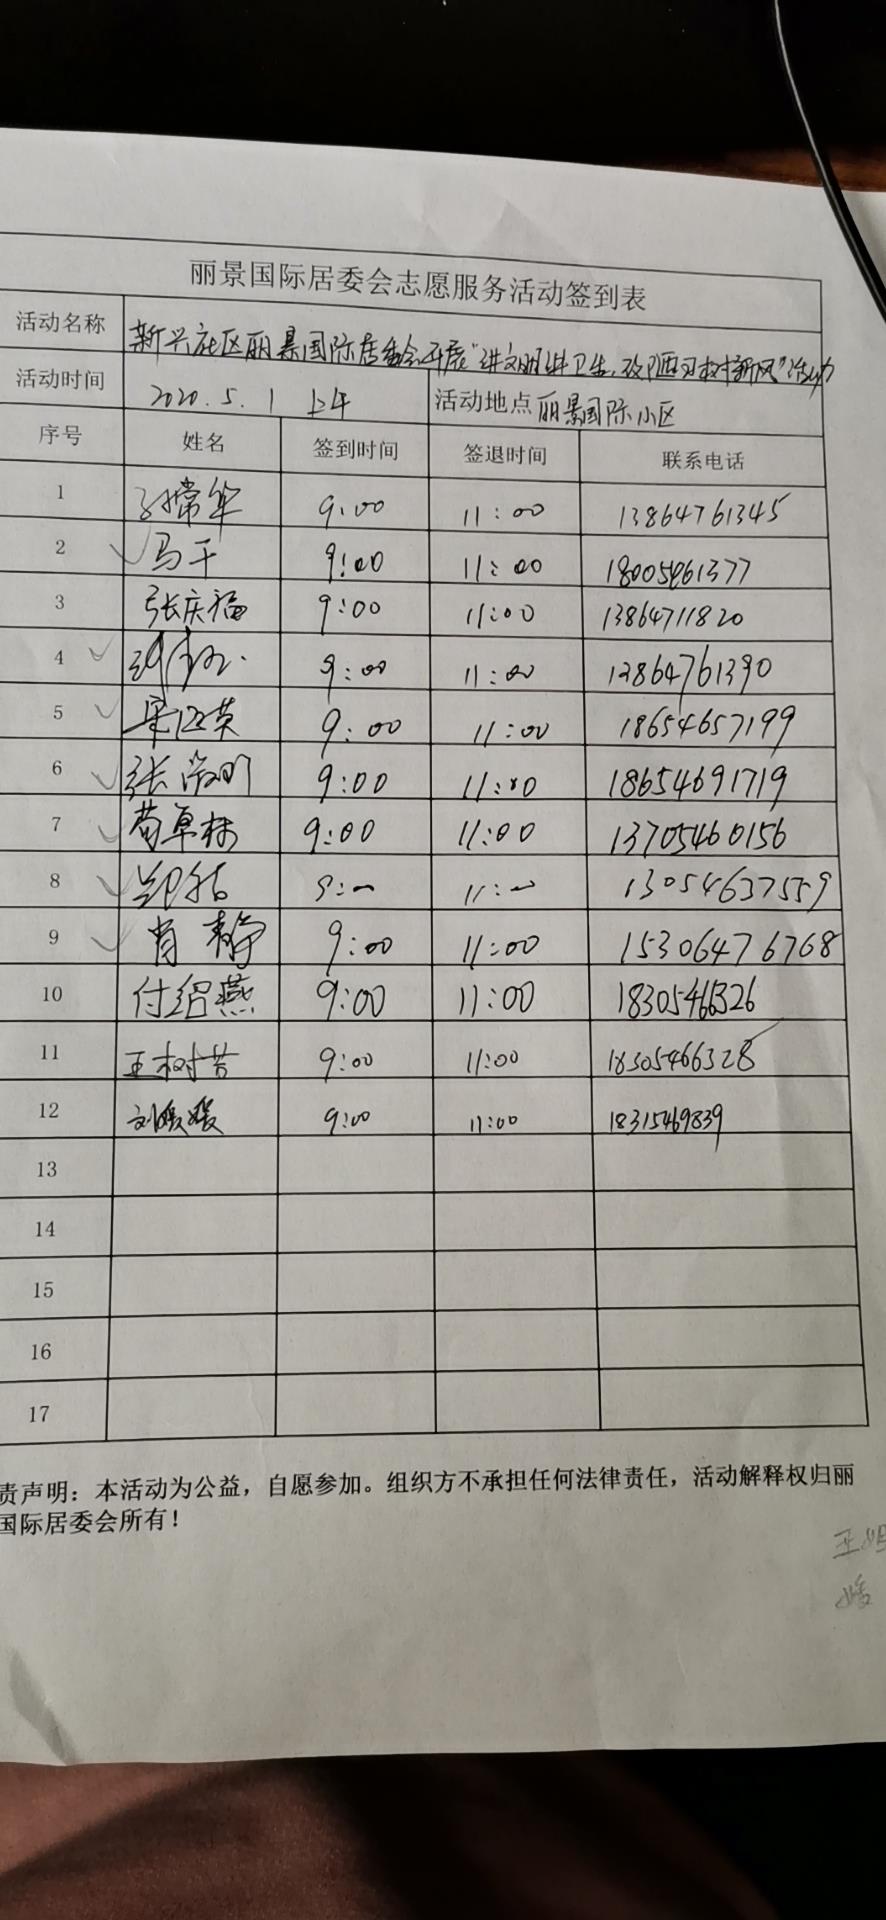 丽景国际居委会志愿服务活动签到表
活动名称 新兴社区丽景国际居委会开展"讲文明讲卫生,改陋习树新风"活动
活动时间 2020.5.1 上午 活动地点 丽景国际小区
序号 姓名 签到时间 签退时间 联系电话
1 9:00 11:00 13864761345
2 马干 9:00 11:00 18005461377
3 张庆福 9:00 11:00 13864711820
4 9:00 11:00 13864761390
5 9:00 11:00 18654657199
6 张 9:00 11:00 18654691719
7 9:00 11:00 13705460156
8 9:00 11:00 13054637559
9 肖静 9:00 11:00 15306476768
10 付绍燕 9:00 11:00 18305466326
11 王树芳 9:00 11:00 18305466328
12 刘媛媛 9:00 11:00 18315469839
13
14
15
16
17
责声明：本活动为公益，自愿参加。组织方不承担任何法律责任，活动解释权归丽
国际居委会所有！